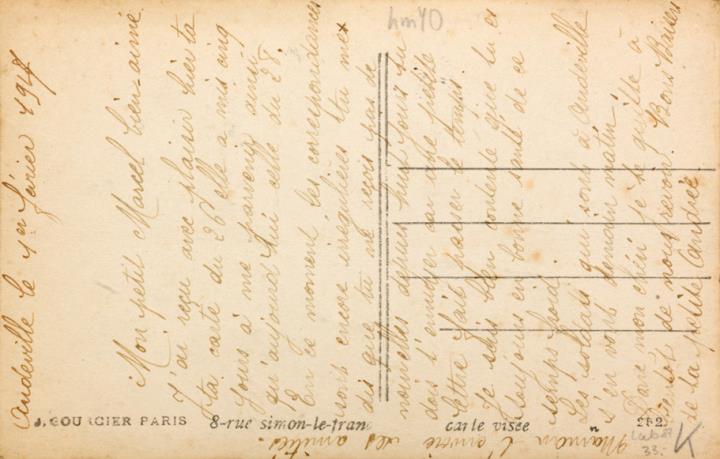 Andeville le 1er février 1918
Mon petit Marcel bien-aimé
J'ai reçu avec plaisir hier ta
carte du 26 elle a mis cinq
jours à me parvenir ainsi
qu'aujourd'hui celle du 28.
En ce moment les correspondances
sont encore irrégulières tu me
dis que tu ne reçois pas de
nouvelles depuis huit jours tu
dois t'ennuyer car une petite
lettre fait passer le temps.
Je suis bien contente que tu es
toujours en bonne santé de ce
temps froid.
Les soldats qui sont à Andeville
s'en vont demain matin.
mon chéri je te quitte à
bientôt de nous revoir. Bons Baisers
de ta petite Andrée
Maman t'envoie ses amitiés.
J. COURCIER PARIS 8-rue simon-le-franc carte visée
282
33.-
K
hm40